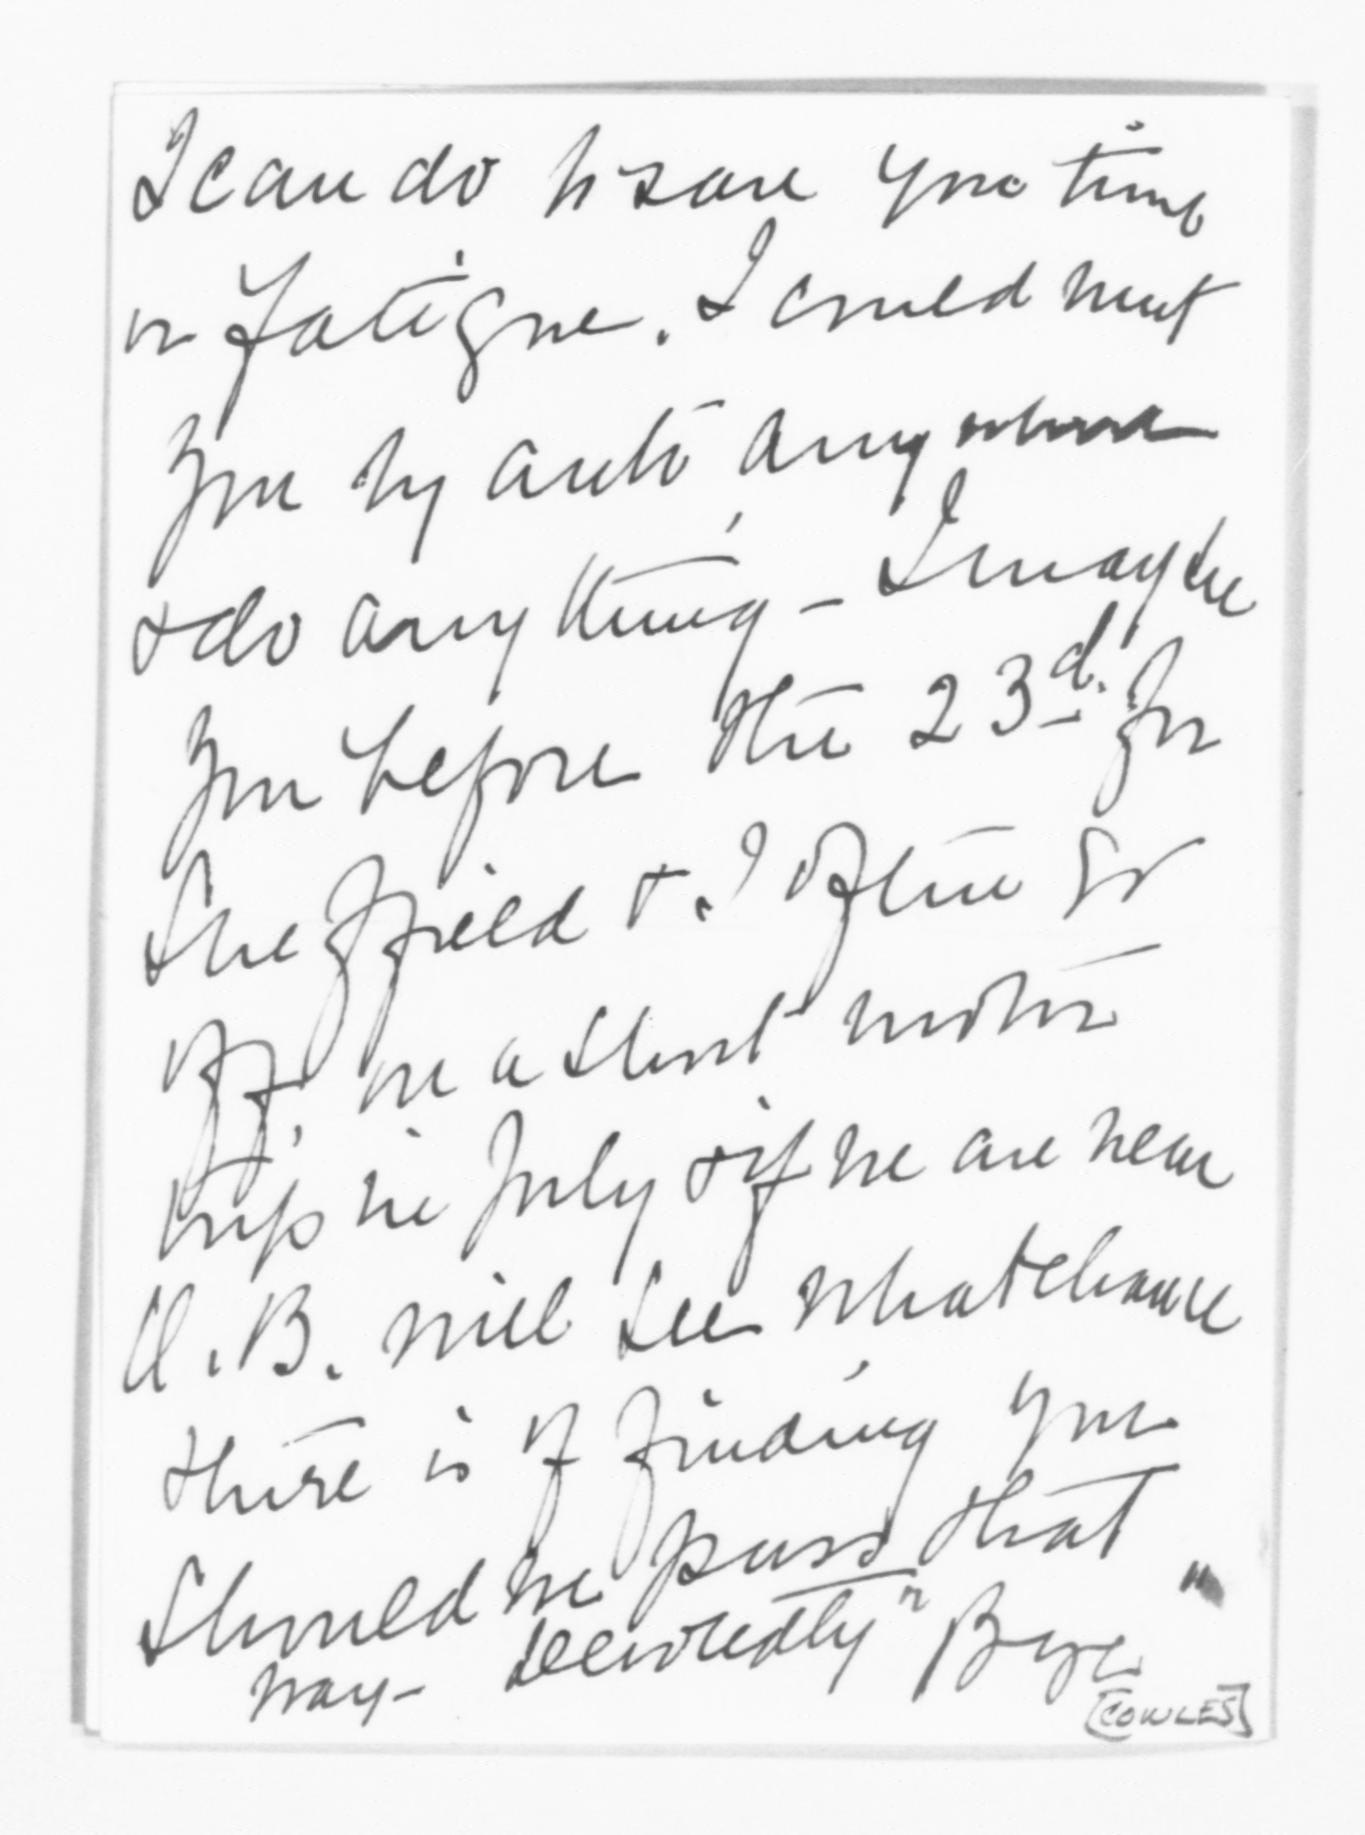 I can do to save you time
or fatigue. I could meet
you by auto anywhere
& do anything – I may be
you before the 23d. for
Sheffield & I often go
off, on a short motor
trip in July & if we are near
O.B. will see what chance
there is of finding you
should we pass that
way – Devotedly "Bye"
[COWLES]